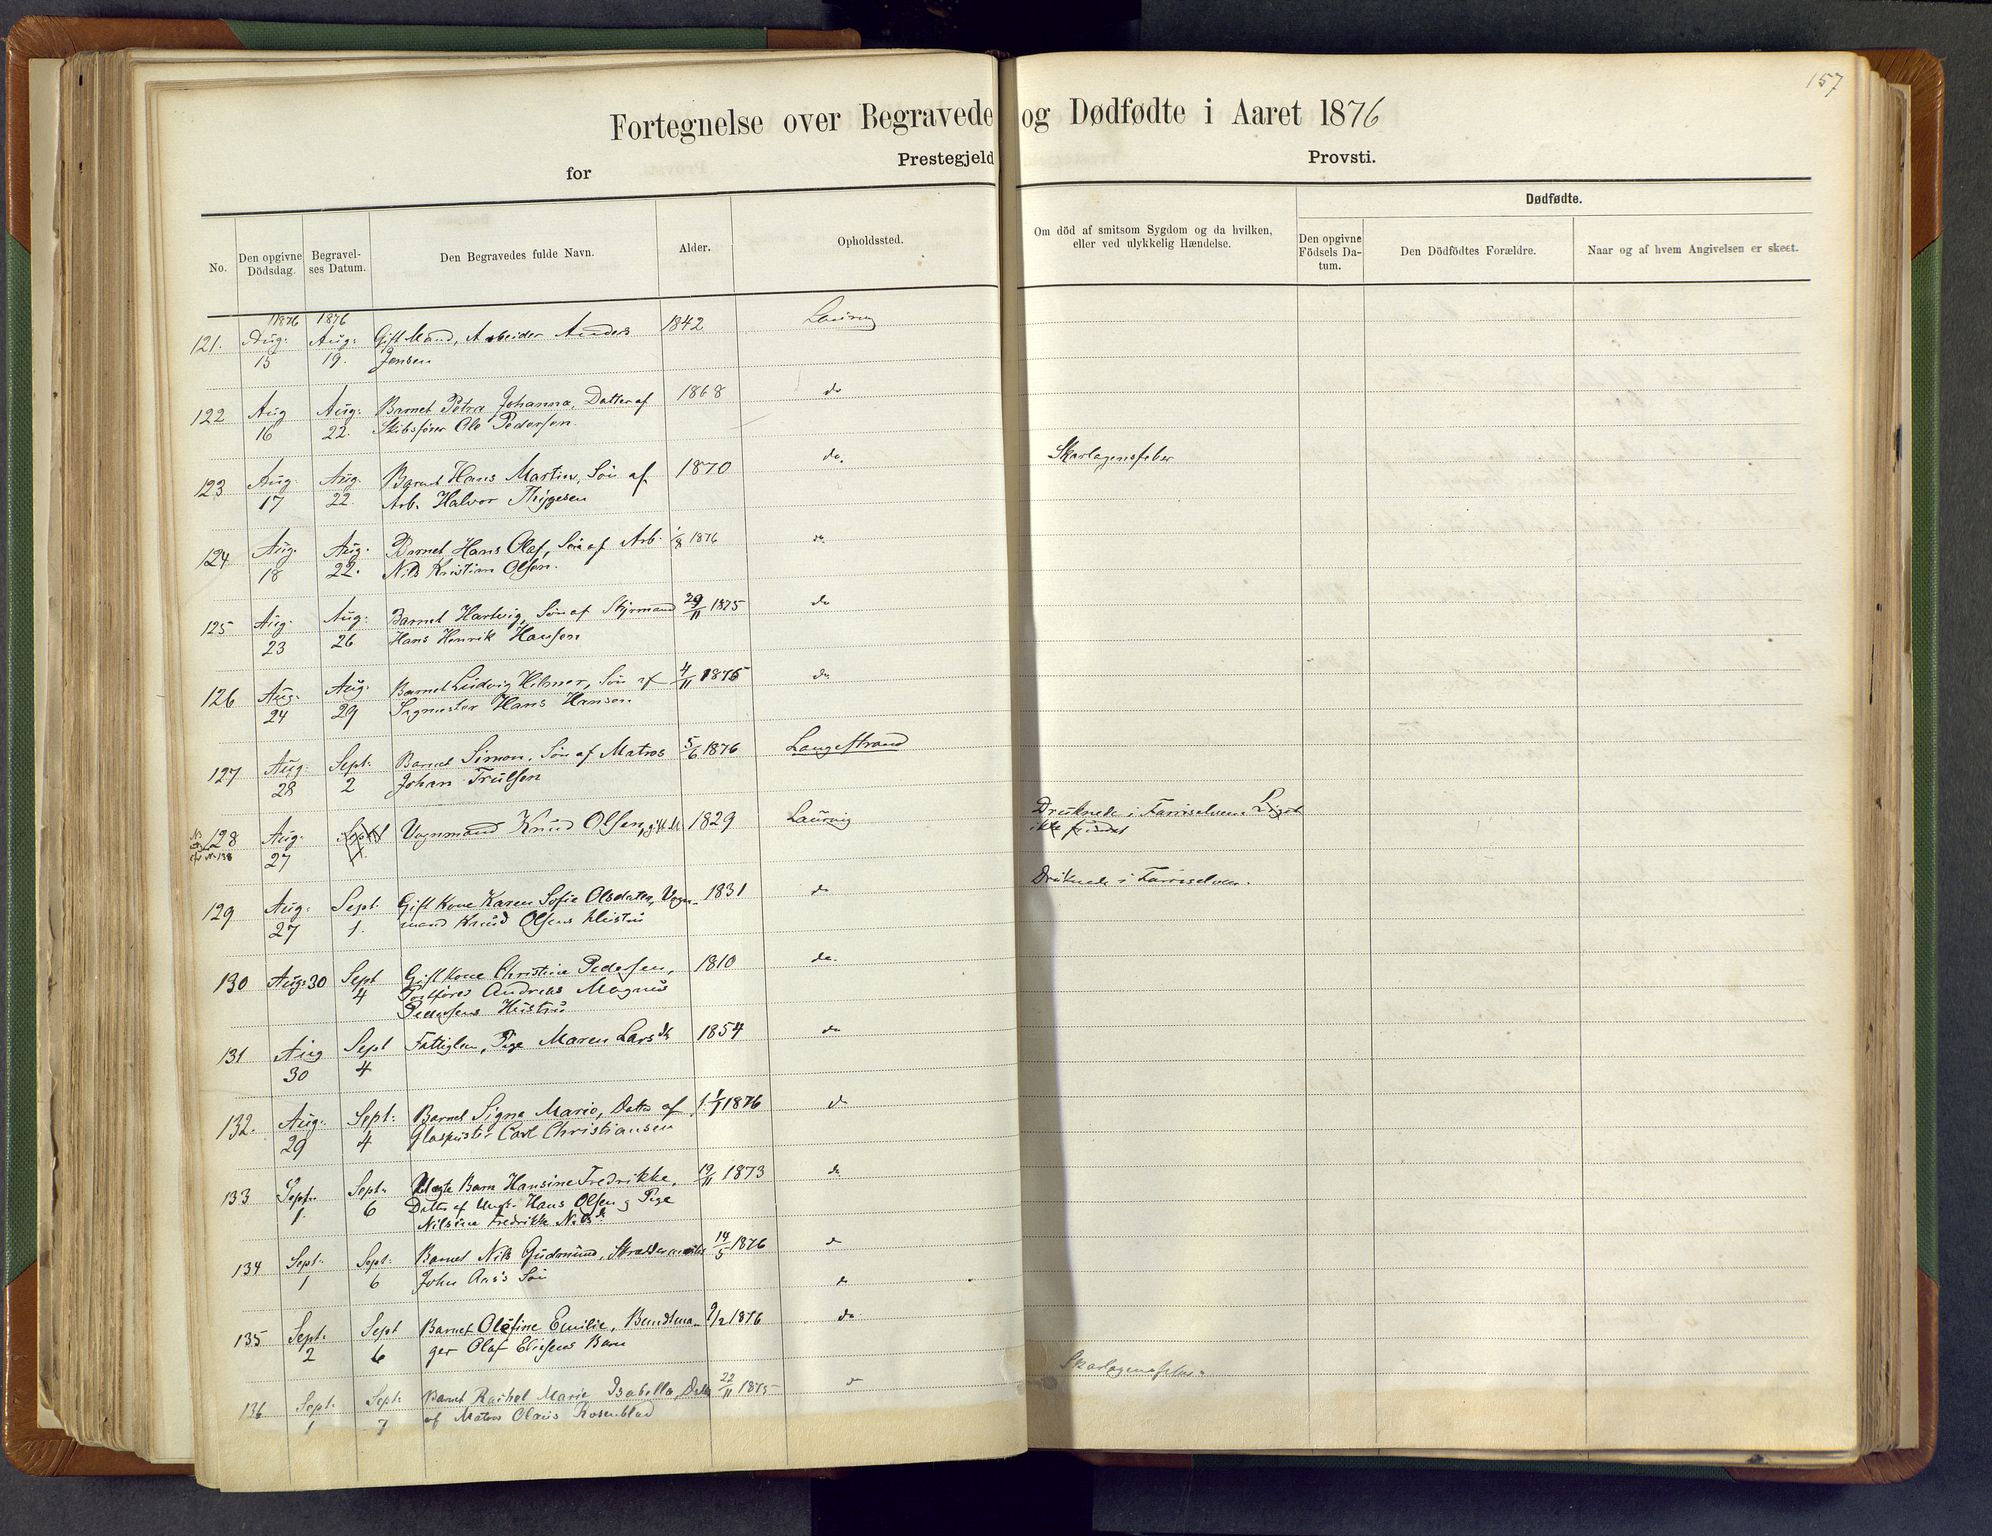 157
Fortegnelse over Begravede og Dødfødte i Aaret 1876
for Prestegjeld Provsti.
No. Den opgivne Dödsdag. Begravelses Datum. Den Begravedes fulde Navn. Alder. Opholdssted. Om död af smitsom Sygdom og da hvilken, eller ved ulykkelig Hændelse. Dødfødte.
Den opgivne Födsels Datum. Den Dödfödtes Forældre. Naar og af hvem Angivelsen er skeet.
1876 1876
121. Aug: Aug: Gift Mand, Arbeider Anders 1842 Laurvig
15 19. Jensen
122 Aug Aug: Barnet Petra Johanna, Datter af 1868 do
16 22. Skibsfører Ole Pedersen.
123 Aug. Aug. Barnet Hans Martin, Søn af 1870 do. Skarlagensfeber
17 22 Arb. Halvor Thygesen
124 Aug. Aug. Barnet Hans Olaf, Søn af Arb. 1/8 1876 do
18 22. Nils Kristian Olsen.
125 Aug. Aug: Barnet Hartvig, Søn af 29/11 1875 do
23 26 Hans Henrik Hansen
126 Aug: Aug: Barnet Ludvig Hilmer, Søn af 4/11 1875 do
24 29 Sagmester Hans Hansen
127 Aug: Sept: Barnet Simon, Søn af Matros 5/6 1876 Langestrand
28 2 Johan Trulsen
128 Aug: Sept Vognmand Knud Olsen, gift 1829 Laurvig Druknede i Farriselven. Liget
27 ikke fundet
No 138
129 Aug: Sept. Gift Kone Karen Sofie Olsdatter, Vogn- 1831 do Druknede i Farriselven.
27 1. mand Knud Olsens Hustru
130 Aug: 30 Sept Gift Kone Christine Pedersen, 1810 do.
4 Andreas Magnus
Pedersens Hustru
131 Aug Sept Fattiglem, Pige Maren Larsdt 1854 do
30 4
132. Aug. Sept: Barnet Signe Marie, Datter af 1876 do
29 4 Glaspuster Carl Christiansen
133 Sept. Sept: Uægte Barn Hansine Fredrikke, 19/11 1873 do
1. 6 Datter af Hans Olsen og Pige
Nilsine Fredrikke Nilsdt
134 Sept: Sept: Barnet Nils Gudmund, Skræddermester 14/5 1876 do
1 6 John Aas's Søn do
135 Sept: Sept Barnet Olefine Emilie, Bundtma- 9/2 1876 do
2 6 ger Olaf Elisens Barn
136 Sept: Sept: Barnet Rachel Marie Isabella, Datter 22/11 1875 do Skarlagensfeber
1 7 af Matros Olaus Rosenblad